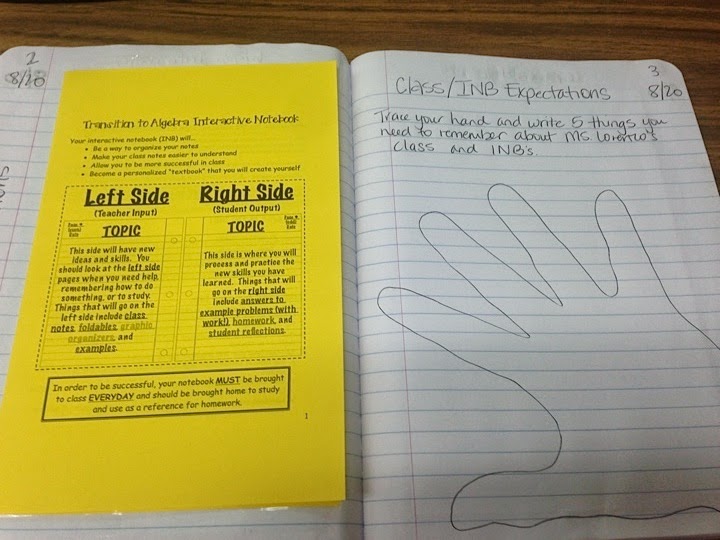 2
8/20
Transition to Algebra Interactive Notebook
Your interactive notebook (INB) will...
• Be a way to organize your notes
• Make your class notes easier to understand
• Allow you to be more successful in class
• Become a personalized "textbook" that you will create yourself
Left Side
(Teacher Input)
TOPIC
This side will have new
ideas and skills. You
should look at the left side
pages when you need help,
remembering how to do
something, or to study.
Things that will go on the
left side include class
notes, foldables, graphic
organizers, and
examples.
Right Side
(Student Output)
TOPIC
This side is where you will
process and practice the
new skills you have
learned. Things that will
go on the right side
include answers to
example problems (with
work!), homework, and
student reflections.
In order to be successful, your notebook MUST be brought
to class EVERYDAY and should be brought home to study
and use as a reference for homework.
1
3
Class/INB Expectations 8/20
Trace your hand and write 5 things you
need to remember about Ms. Lorenzo's
class and INB's.